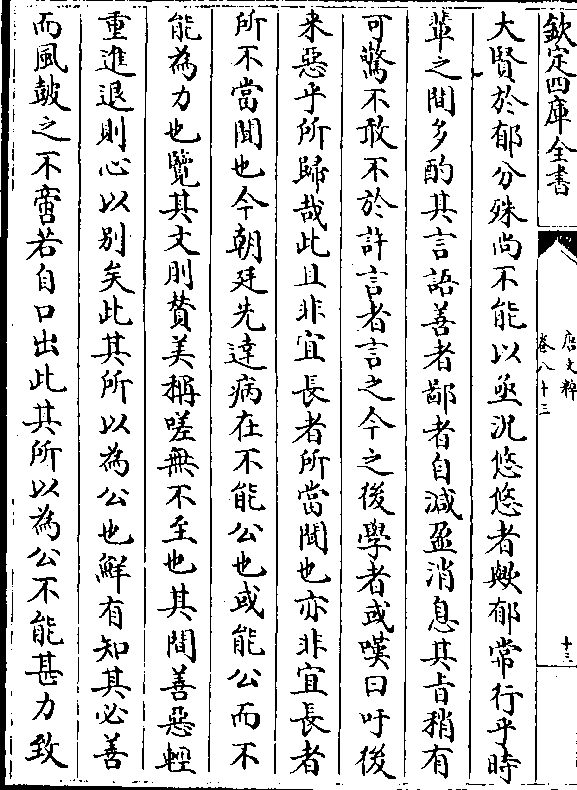 欽定四庫全書
唐文粹
卷八十三
十三
大賢於郁分殊尚不能以亟況悠悠者歟郁常行乎時
輩之間多酌其言語善者鄙者自減盈消息其旨稍有
可驚不敢不於許言者言之今之後學者或嘆曰吁後
来惡乎所歸哉此且非宜長者所當聞也亦非宜長者
所不當聞也今朝廷先達病在不能公也或能公而不
能為力也覽其文則賛美稱嗟無不至也其間善惡輕
重進退則心以别矣此其所以為公也鮮有知其必善
而風鼓之不啻若自口出此其所以為公不能甚力致